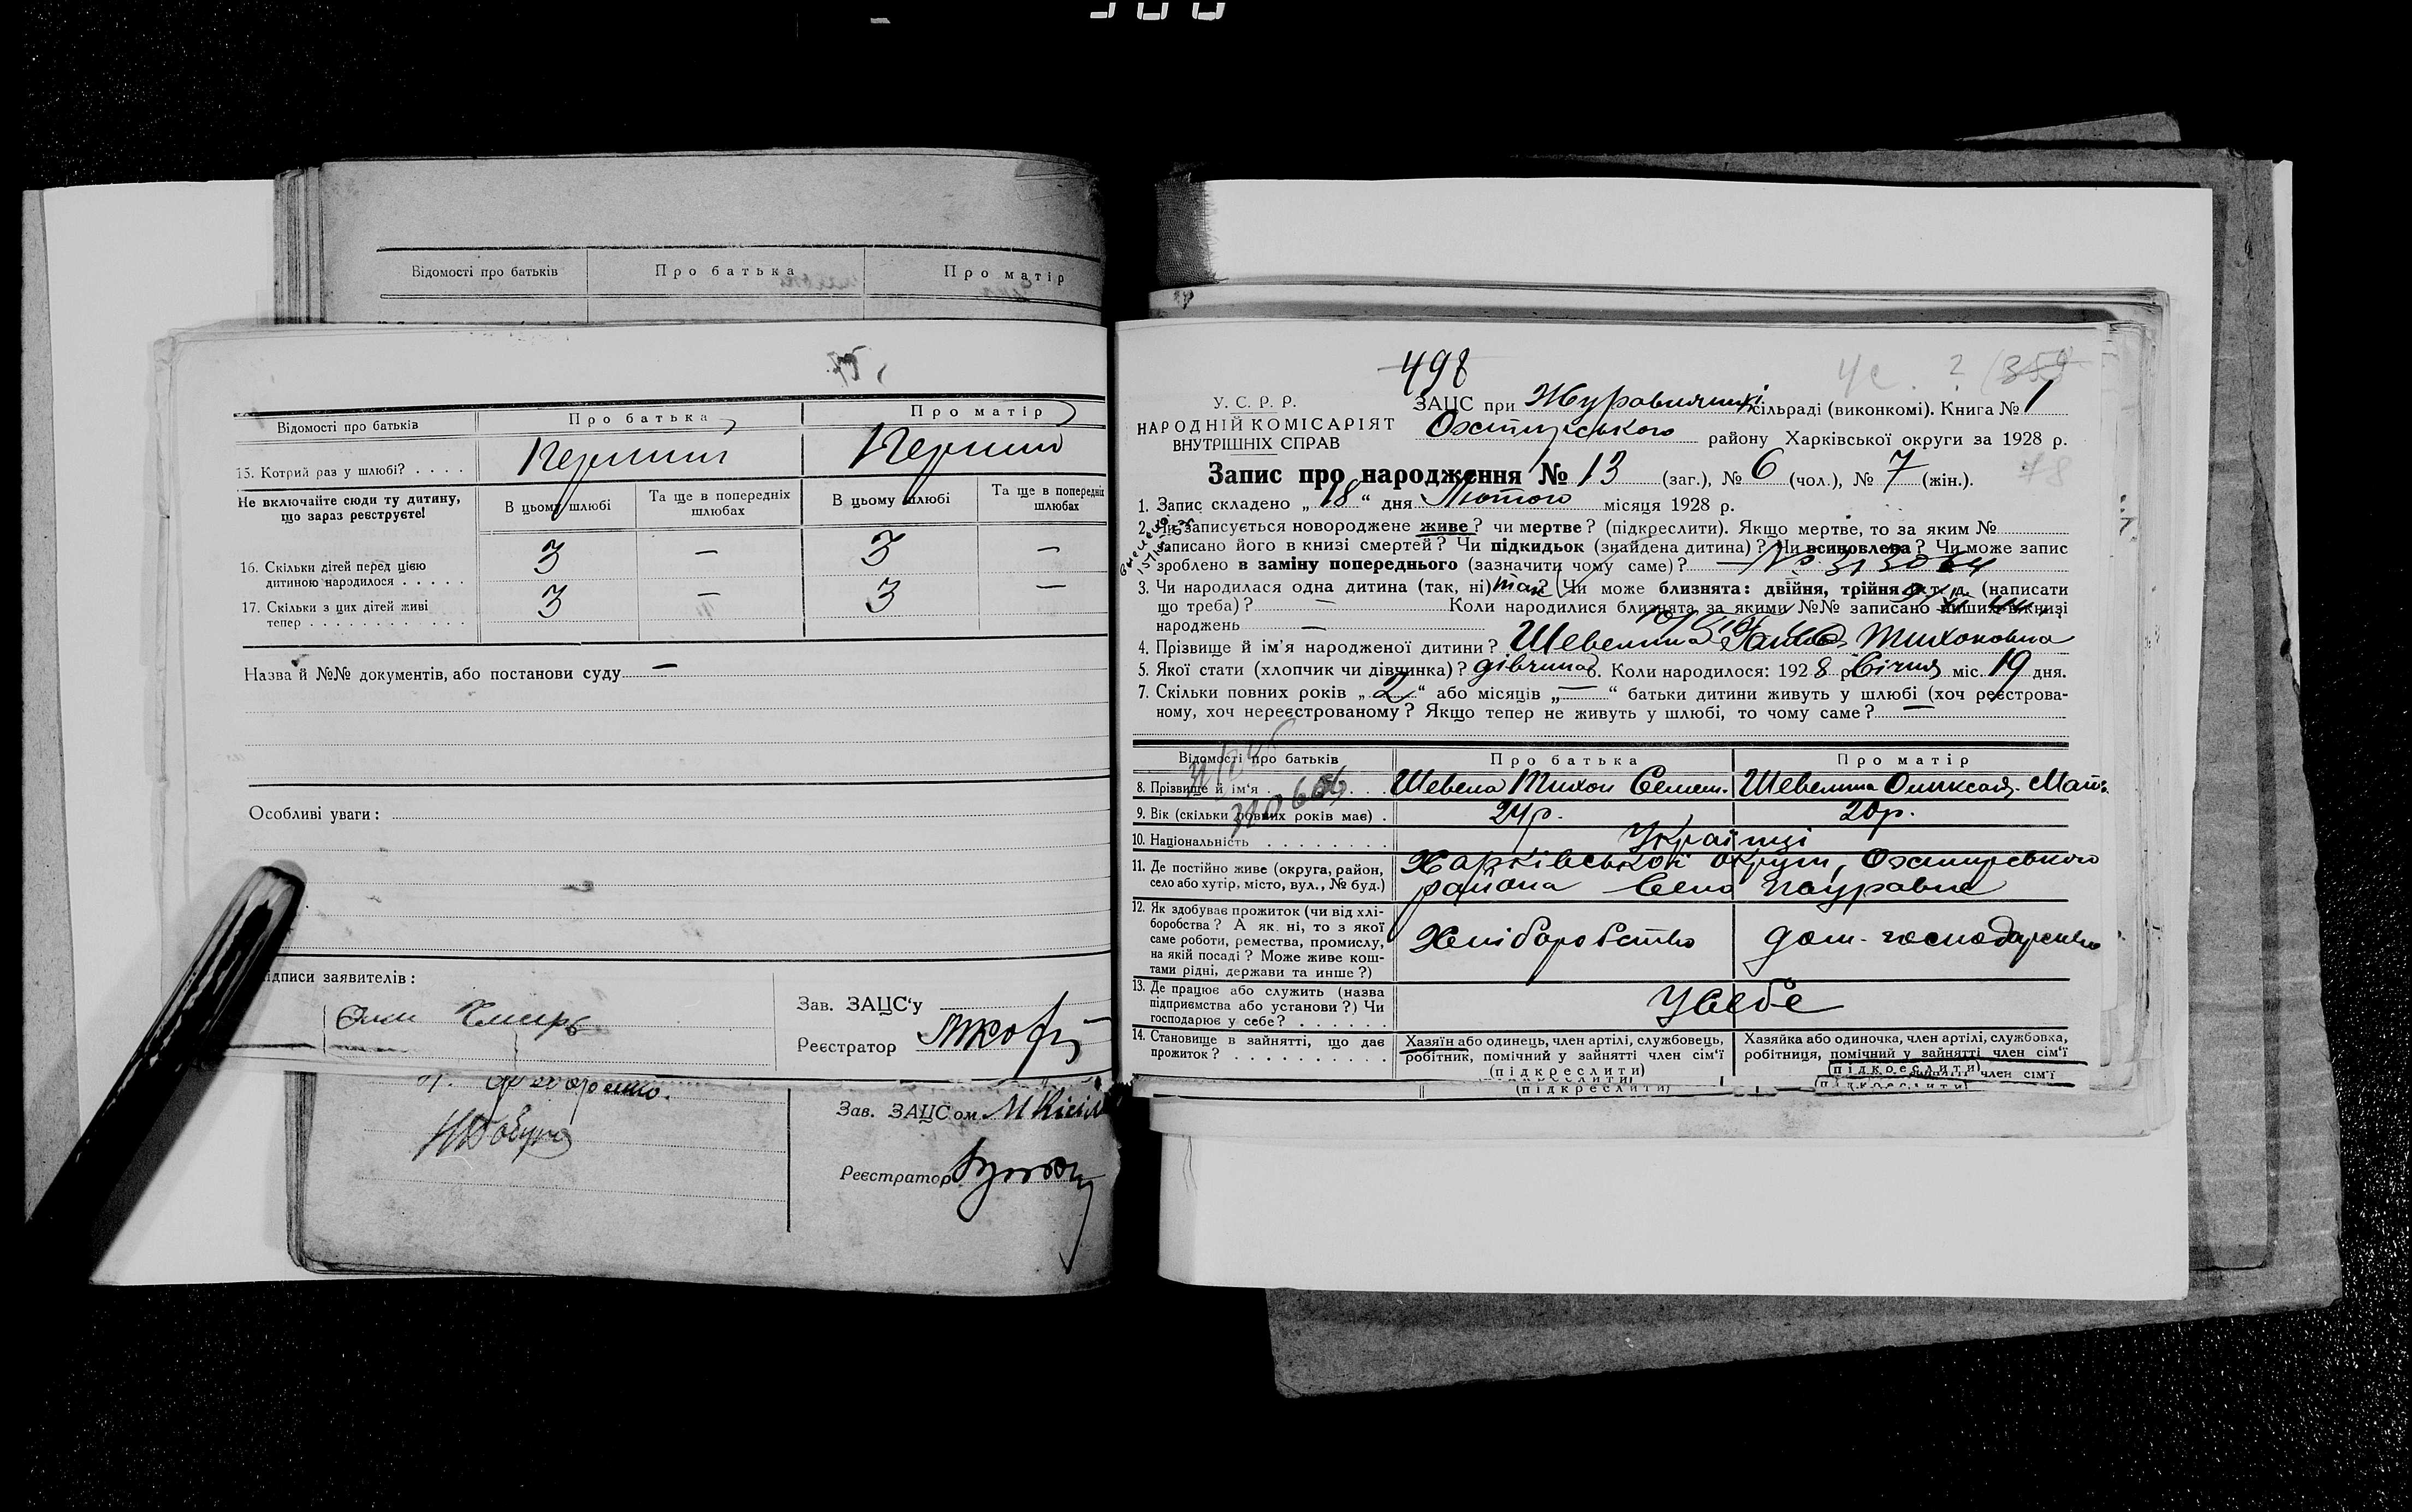 Відомості про батьків Про батька Про матір
Відомості про батьків Про батька Про матір
15. Котрий раз у шлюбі? . . . . Перший Перший
Не включайте сюди ту дитину, що зараз реєструєте!
В цьому шлюбі Та ще в попередніх шлюбах В цьому шлюбі Та ще в попередніх шлюбах
16. Скільки дітей перед цією
дитиною народилося . . . . . 3 — 3 —
17. Скільки з цих дітей живі
тепер . . . . . . . . . . . 3 — 3 —
Назва й №№ документів, або постанови суду —
Особливі уваги:
ідписи заявителів:
Зав. ЗАЦС'у
Реєстратор
Зав. ЗАЦСом
Реєстратор
498
У. С. Р. Р.
НАРОДНІЙ КОМІСАРІЯТ
ВНУТРІШНІХ СПРАВ
ЗАЦС при сільраді (виконкомі). Книга № 1
Охтирського району Харківської округи за 1928 р.
Запис про народження № 13 (заг.), № 6 (чол.), № 7 (жін.).
78
1. Запис складено „18" дня Лютого місяця 1928 р.
2. Чи записується новороджене живе? чи мертве? (підкреслити). Якщо мертве, то за яким №
записано його в книзі смертей? Чи підкидьок (знайдена дитина)? Чи всиновлена? Чи може запис
зроблено в заміну попереднього (зазначити чому саме)? —
3. Чи народилася одна дитина (так, ні) так? (Чи може близнята: двійня, трійня й т. д. (написати
що треба)? — Коли народилися близнята за якими №№ записано инших в книзі
народжень —
4. Прізвище й ім'я народженої дитини? Шевелина Тихоновна
5. Якої стати (хлопчик чи дівчинка)? дівчина 6. Коли народилося: 1928 р. Січня міс. 19 дня.
7. Скільки повних років „2" або місяців „—" батьки дитини живуть у шлюбі (хоч реєстрова-
ному, хоч нереєстрованому? Якщо тепер не живуть у шлюбі, то чому саме? —
Відомості про батьків Про батька Про матір
8. Прізвище й ім'я . . . . Шевела Тихон Семен. Шевелина
9. Вік (скільки повних років має) . 24р. 20р.
10. Національність . . . . . . . . Українці
11. Де постійно живе (округа, район, Харківської округи, Охтирського
село або хутір, місто, вул., № буд.) района Село
12. Як здобуває прожиток (чи від хлі-
боробства? А як ні, то з якої
саме роботи, ремества, промислу, Хліборобство дом-господарство
на якій посаді? Може живе кош-
тами рідні, держави та инше?)
13. Де працює або служить (назва
підприємства або установи?) Чи У себе
господарює у себе? . . . . . .
14. Становище в зайнятті, що дає
прожиток? . . . . . . . . . .
Хазяїн або одинець, член артілі, службовець,
робітник, помічний у зайнятті член сім'ї
(підкреслити)
Хазяйка або одиночка, член артілі, службовка,
робітниця, помічний у зайнятті член сім'ї
(підкреслити)
член сім'ї
(підкреслити) (підкреслити)